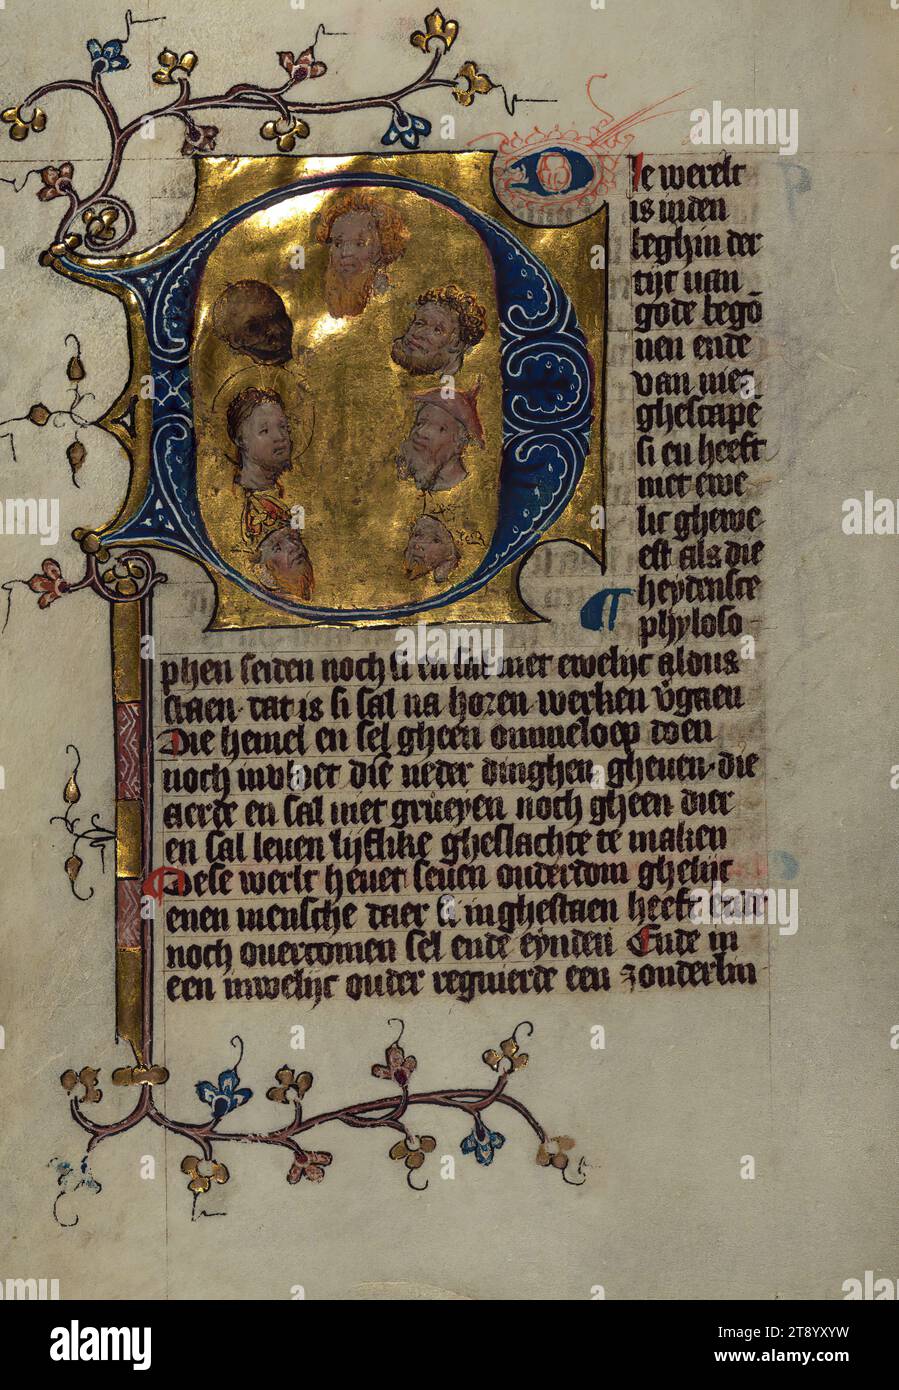 Die werelt
is inden
beghin der
tijt van
gode bego
nen ende
van nier
ghescape
si en heeft
niet ewe
lic ghewe
est als die
heydensce
phyloso
phen seiden noch si en sal niet ewelijc aldus
staen. dat is si sal na horen werken vergaen
Die hemel en sel gheen ommeloep doen
noch invloet die neder dinghen gheven. die
aerde en sal niet grueyen noch gheen dier
en sal leven lijflike gheslachte te maken
Dese werlt hevet seven ouderdom ghelijc
enen mensche daer si in ghestaen heeft ende
noch overcomen sel ende eynden Ende in
een inwelijc ouder regnierde een zonderlin
alamy
Image ID: 2T8YXYW
www.alamy.com